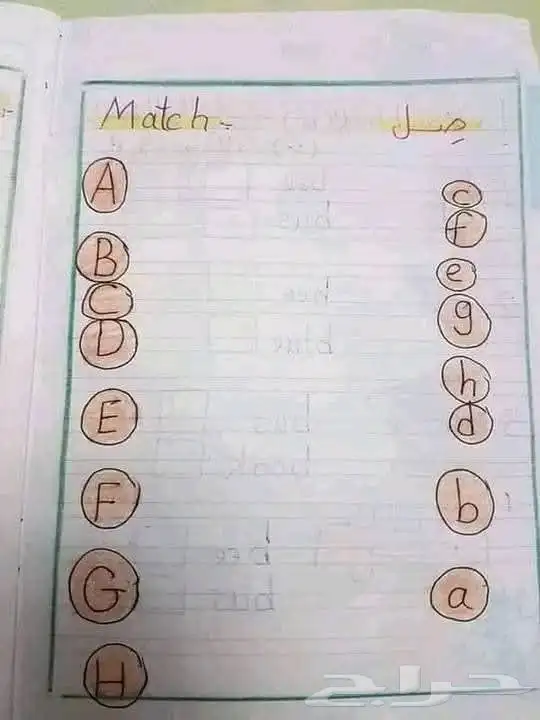 Match :- صل
A c
f
B
C e
D g
h
E d
F b
G a
H
حراج